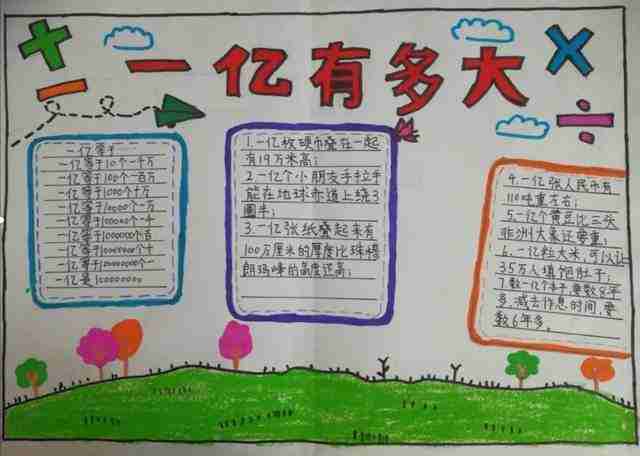 一亿有多大
一亿等于
一亿等于10个一千万
一亿等于100个一百万
一亿等于1000个十万
一亿等于10000个一万
一亿等于100000个一千
一亿等于1000000个百
一亿等于10000000个十
一亿等于100000000个一
一亿是100000000
1.一亿枚硬币叠在一起
有19万米高;
2.一亿个小朋友手拉手
能在地球赤道上绕3
圈半;
3.一亿张纸叠起来有
100万厘米的厚度比珠穆
朗玛峰的高度还高;
4.一亿张人民币有
110吨重左右;
5.一亿个黄豆比三头
非洲大象还要重;
6.一亿粒大米,可以让
35万人填饱肚子;
7.数一亿个本子,要数
多,减去作息时间,要
数6年多。